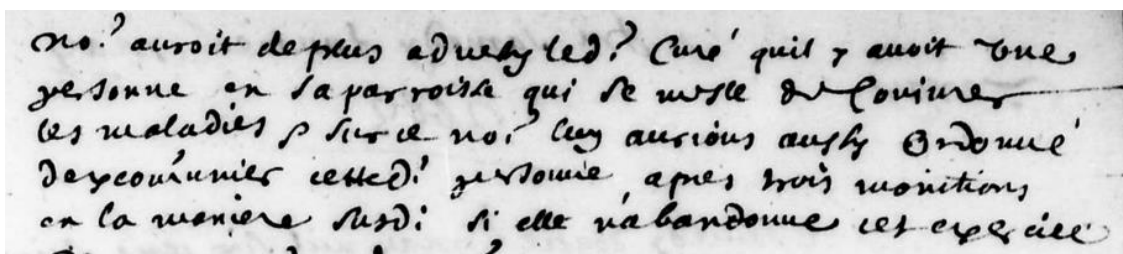 no.? auroit de plus adverty led.? Curé quil y avoit vne
personne en sa parroisse qui se mesle de Coniurer
les maladies, sur ce no.? luy aurions aussy ordonné
dexcom̃unier cetted.? personne, apres trois monitions
en la maniere susd.? si elle n'abandonne cet exercice